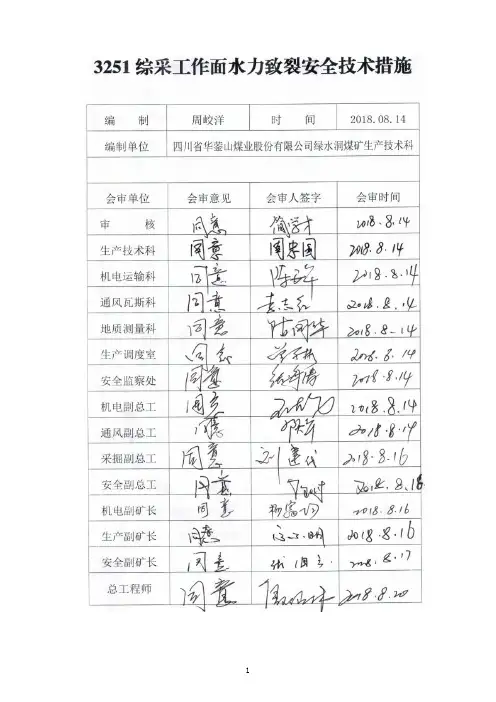 3251 综采工作面水力致裂安全技术措施
编 制 周峻洋 时 间 2018.08.14
编制单位 四川省华蓥山煤业股份有限公司绿水洞煤矿生产技术科
会审单位 会审意见 会审人签字 会审时间
审 核 同意 简学才 2018.8.14
生产技术科 同意 周忠国 2018.8.14
机电运输科 同意 2018.8.14
通风瓦斯科 同意 袁志红 2018.8.14
地质测量科 同意 2018.8-14
生产调度室 同意 2018.8.14
安全监察处 同意 2018.8.14
机电副总工 同意 2018.8.14
通风副总工 同意 2018.8.14
采掘副总工 同意 刘建代 2018.8.16
安全副总工 同意 2018.8.16
机电副矿长 同意 2018.8.16
生产副矿长 同意 2018.8.16
安全副矿长 同意 2018.8.17
总工程师 同意 2018.8.20
1